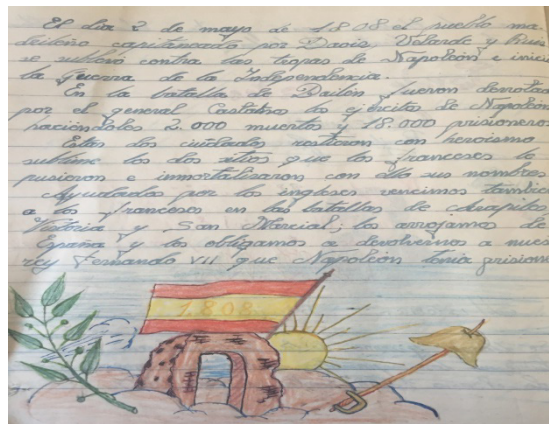 El dia 2 de mayo de 1.808 el pueblo ma-
drileño capitaneado por Daoiz Velarde y Ruiz
se sublevo contra las tropas de Napoleón e inició
la guerra de la Independencia.
En la batalla de Bailén fueron derrotados
por el general Castaños los ejércitos de Napoleón
haciéndoles 2.000 muertos y 18.000 prisioneros
Estas dos ciudades resistieron con heroismo
sublime los dos sitios que los franceses la
pusieron e inmortalizaron con ello sus nombres
Ayudados por los ingleses vencimos también
a los franceses en las batallas de Arapiles
Vitoria y San Marcial; los arrojamos de
España y los obligamos a devolvernos a nues
rey Fernando VII que Napoleón tenia prisione
1.808